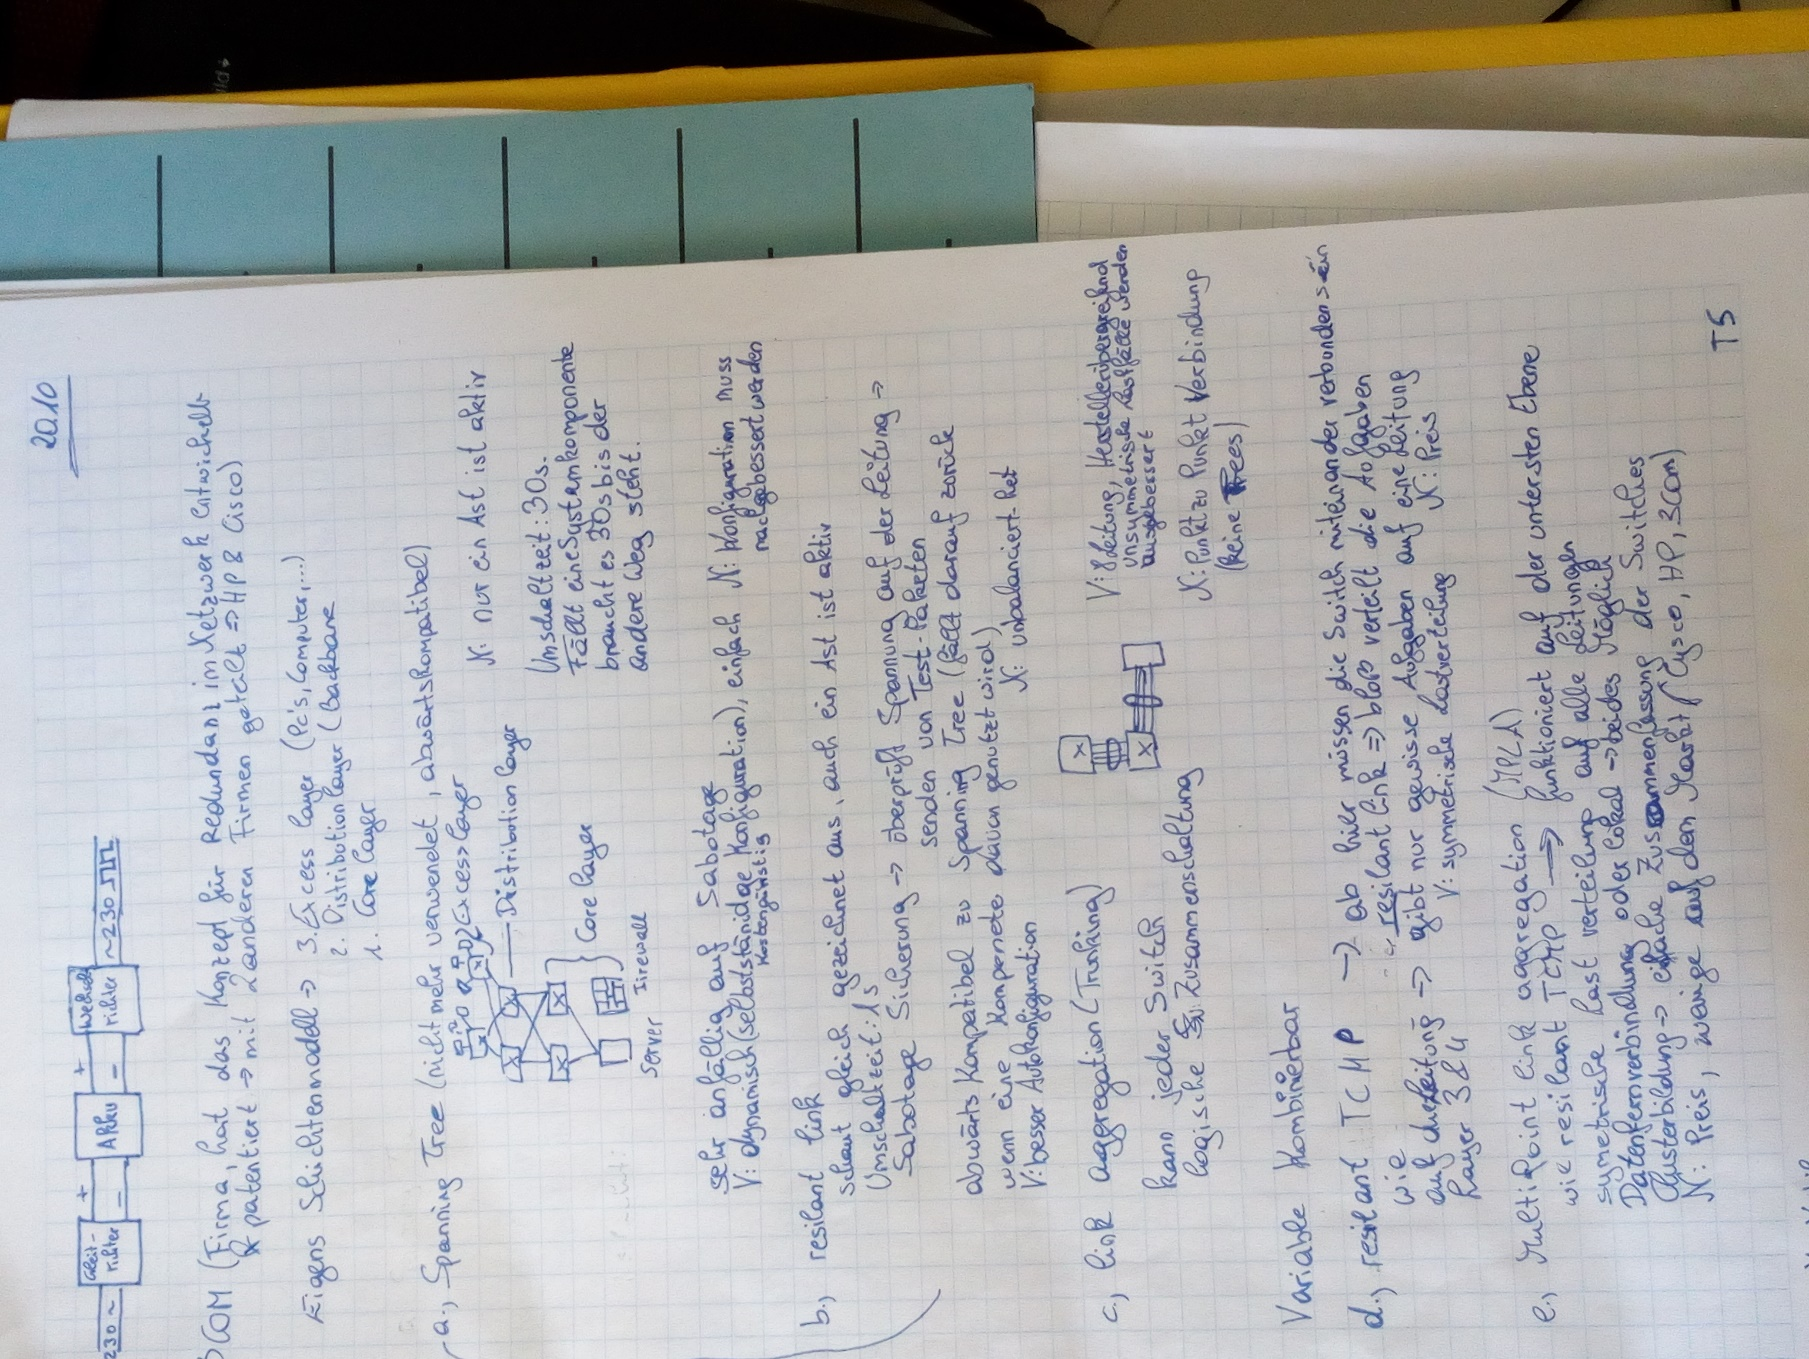 20.10
230 ~ Gleit-richter + - AKKU + - Wechselrichter ~ 230
COM (Firma, hat das Konzept für Redundanz im Netzwerk entwickelt
patentiert → mit 2 anderen Firmen geteilt ⇒ HP & Cisco)
Eigens Schichtenmodell → 3. Excess Layer (Pc's, Computer,...)
2. Distribution Layer (Backbone
1. Core Layer
a., Spanning Tree (nicht mehr verwendet, abwärtskompatibel)
Excess Layer
N: nur ein Ast ist aktiv
Distribution Layer
Core Layer
Server Firewall
Umschaltzeit: 30s.
Fällt eine Systemkomponente
braucht es 30s bis der
andere Weg steht.
sehr anfällig auf Sabotage
V: dynamisch (selbstständige Konfiguration), einfach N: Konfiguration muss
Kostengünstig nachgebessert werden
b., resilant link
schaut gleich gezeichnet aus, auch ein Ast ist aktiv
Umschaltzeit: 1s
Sabotage Sicherung → überprüft Spannung auf der Leitung →
senden von Test-Paketen
abwärts Kompatibel zu Spanning Tree (fällt darauf zurück
wenn eine Kompenete davon genutzt wird)
V: besser Autokonfiguration N: unbalanciert
c., link aggregation (Trunking)
V: 8 Leitung, Herstellerübergreifend
unsymmetrische Lastfälle werden
ausgebessert
kann jeder Switch
logische Zusammenschaltung
N: Punkt zu Punkt Verbindung
(keine Trees)
Variable Kombinierbar
d., resilant TCMP → ab hier müssen die Switch miteinander verbunden sein
wie resilant link ⇒ bloß verteilt die Aufgaben
auf → gibt nur gewisse Aufgaben auf eine Leitung
Layer 3 & 4 V: symmetrische Lastverteilung N: Preis
e., Multi Point link aggregation (MPLA)
wie resilant TCMP → funktioniert auf der untersten Ebene
symetrische Last verteilung auf alle Leitungen
Datenfernverbindung oder Lokal → beides Möglich
Clusterbildung → einfache Zusammenfassung der Switches
N: Preis, wenige auf dem Markt (Cysco, HP, 3Com)
T5